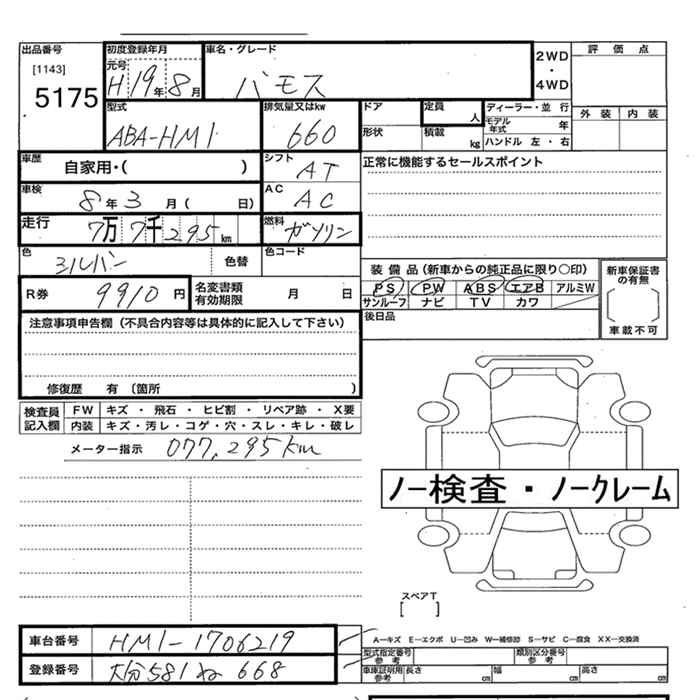 出品番号
[1143]
5175
初度登録年月
元号
H 19年 8月
車名・グレード
バモス
2WD
・
4WD
評価点
外装 内装
型式
ABA-HM1
排気量又はkw
660
ドア
形状
定員
人
積載
kg
ディーラー・並行
モデル年式 年
ハンドル 左・右
車歴
自家用・( )
シフト
AT
正常に機能するセールスポイント
車検
8年 3月 ( 日)
AC
AC
走行
7万 7千 295 km
燃料
ガソリン
色
シルバー
色替
色コード
R券
9910 円
名変書類
有効期限
月 日
装備品 (新車からの純正品に限り〇印)
PS PW ABS エアB アルミW
サンルーフ ナビ TV カワ
後日品
新車保証書
の有無
車載不可
注意事項申告欄 (不具合内容等は具体的に記入して下さい)
修復歴 有 (箇所 )
検査員
記入欄
FW キズ・飛石・ヒビ割・リペア跡・X要
内装 キズ・汚レ・コゲ・穴・スレ・キレ・破レ
メーター指示 077,295km
ノー検査・ノークレーム
スペアT
[ ]
車台番号 HM1-1706219
登録番号 大分581ね668
A-キズ E-エクボ U-凹み W-補修跡 S-サビ C-腐食 XX-交換済
型式指定番号
参考
類別区分番号
参考
車庫証明用
参考
長さ cm 幅 cm 高さ cm